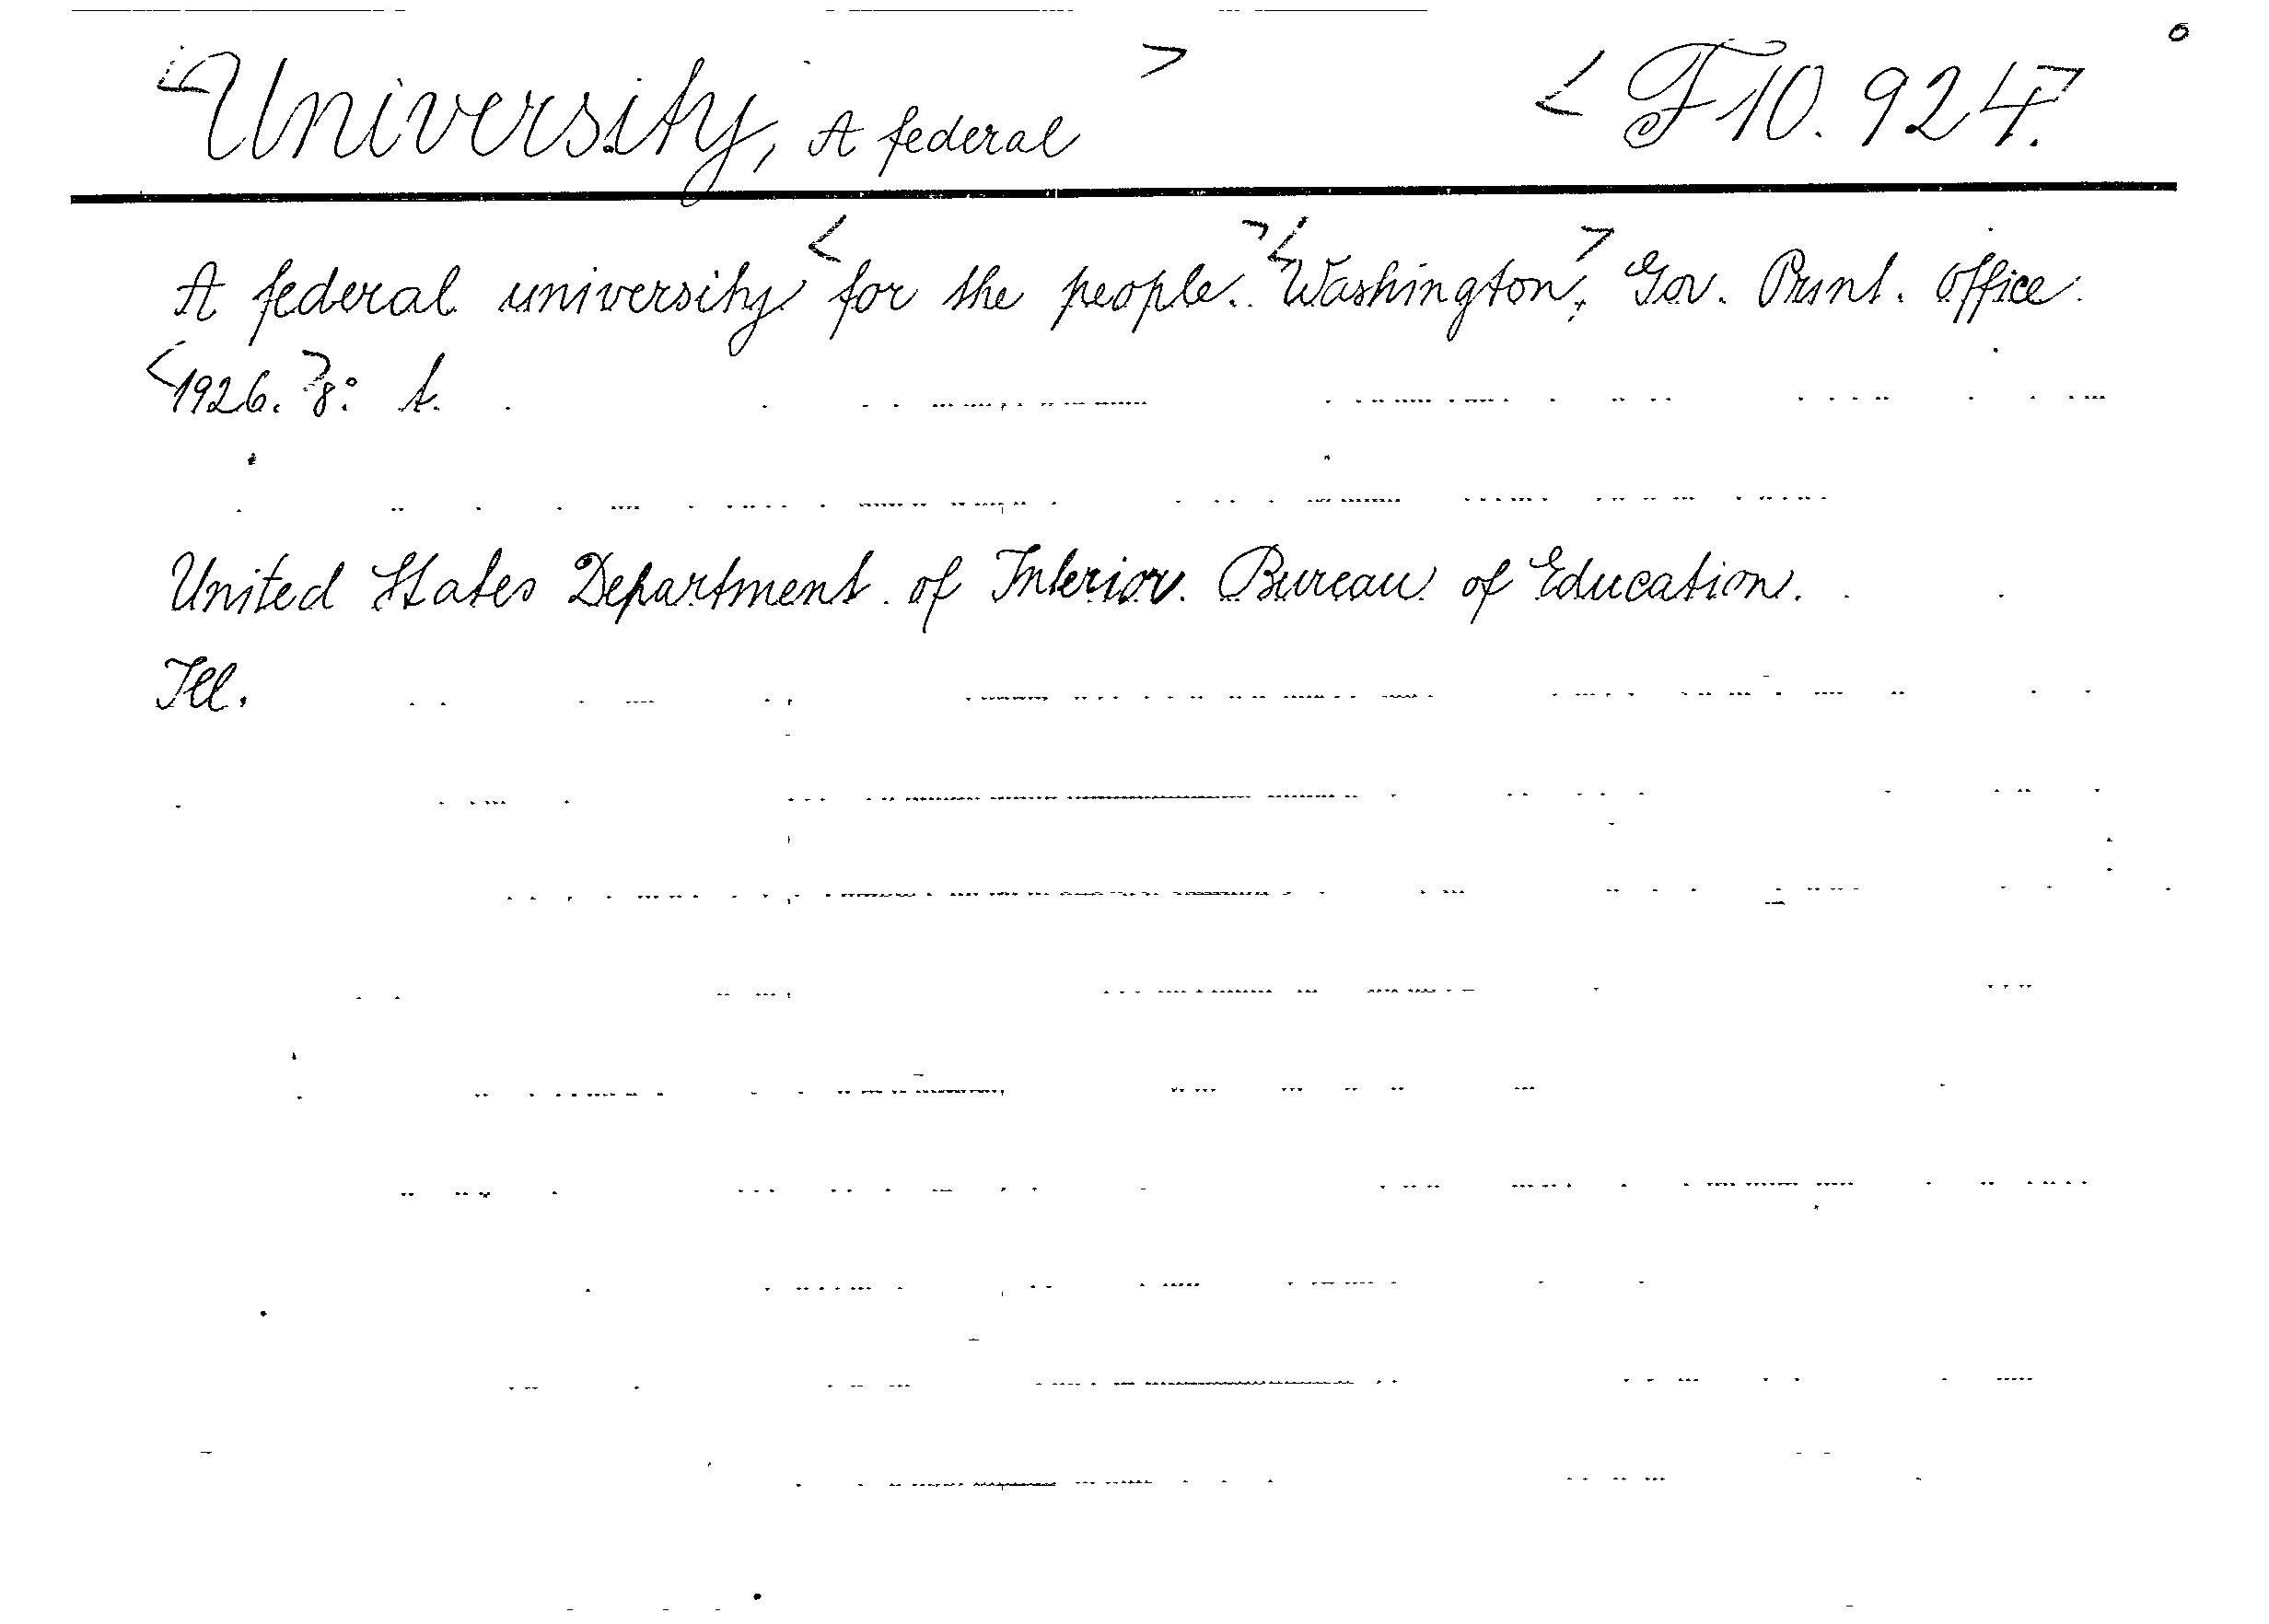 <University, A federal> <F10.924.>
A federal university <for the people.> <Washington,> Gov. Print. Office.
<1926.> 8° t.
United States Department of Interior. Bureau of Education.
Ill.